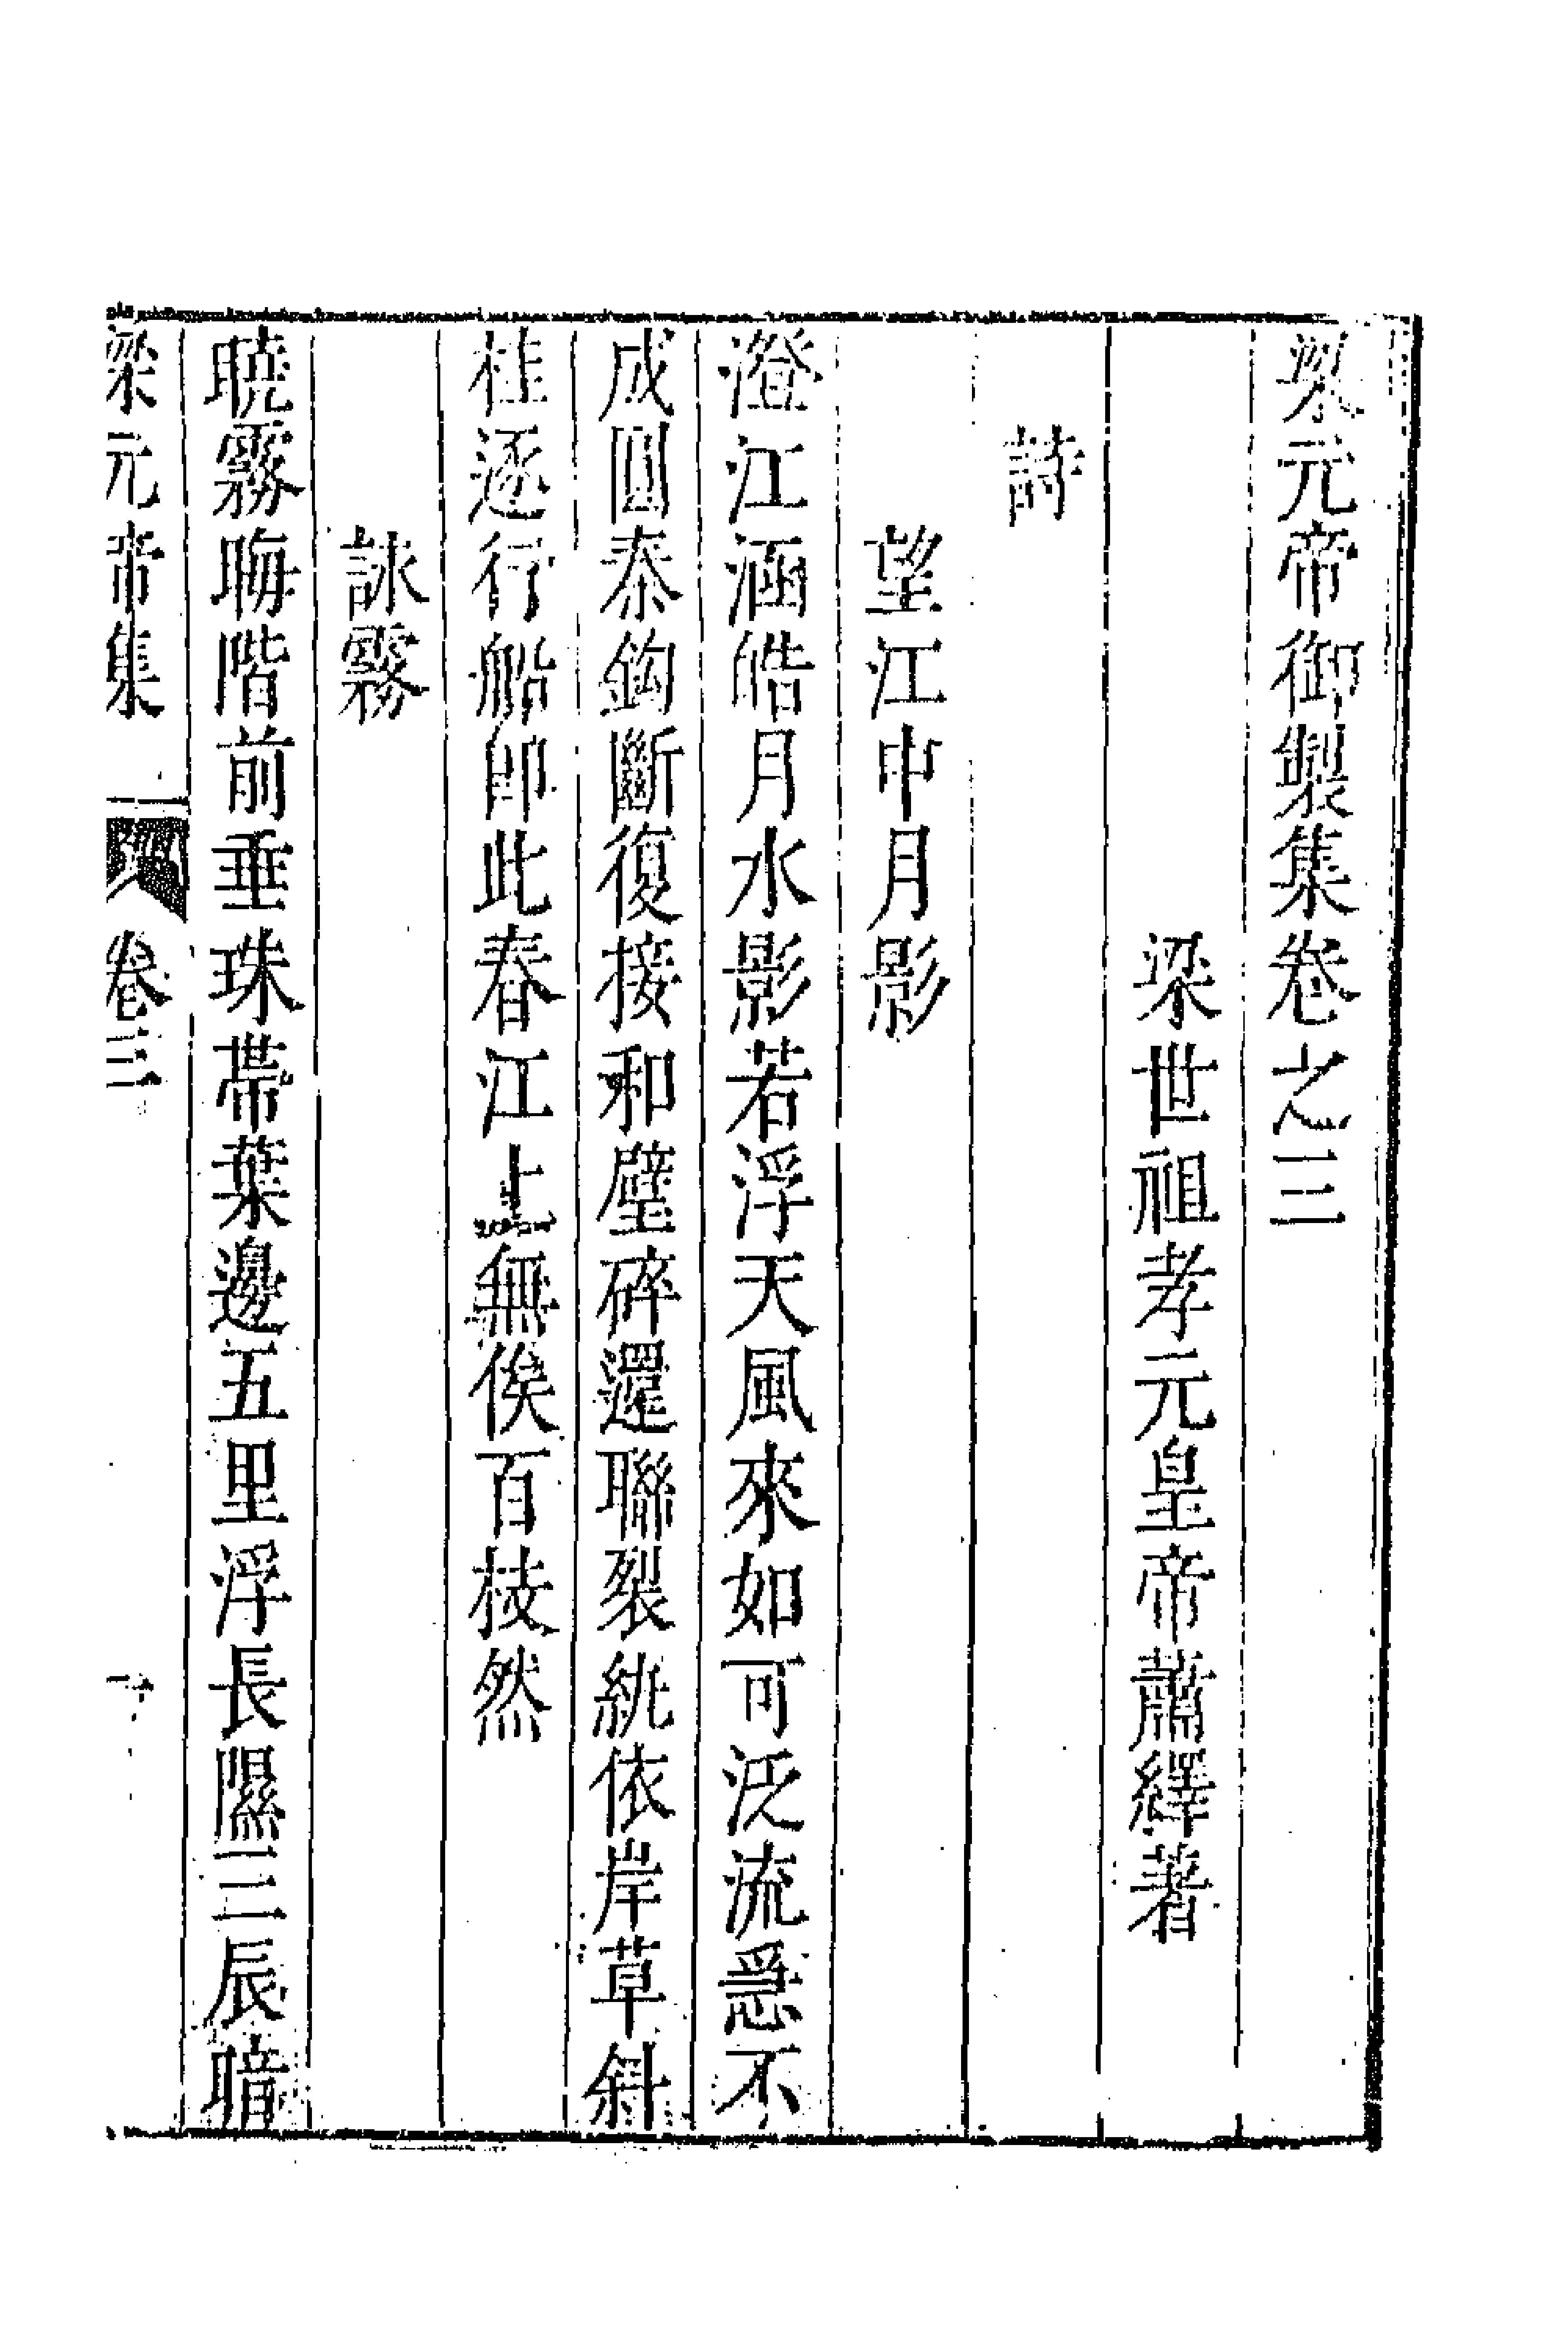 梁元帝御製集卷之三
梁世祖孝元皇帝蕭繹著
詩
望江中月影
澄江涵皓月水影若浮天風來如可泛流急不
成圓秦鈎斷復接和璧碎還聯裂紈依岸草斜
桂逐行船即此春江上無俟百枝然
詠霧
曉霧晦階前垂珠帶葉邊五里浮長隰三辰暗
梁元帝集
卷三
一